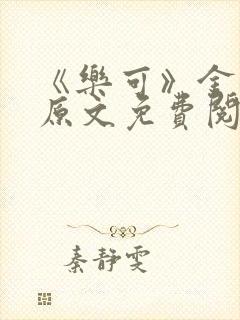 《樂可》全
原文免費閱
秦靜雯